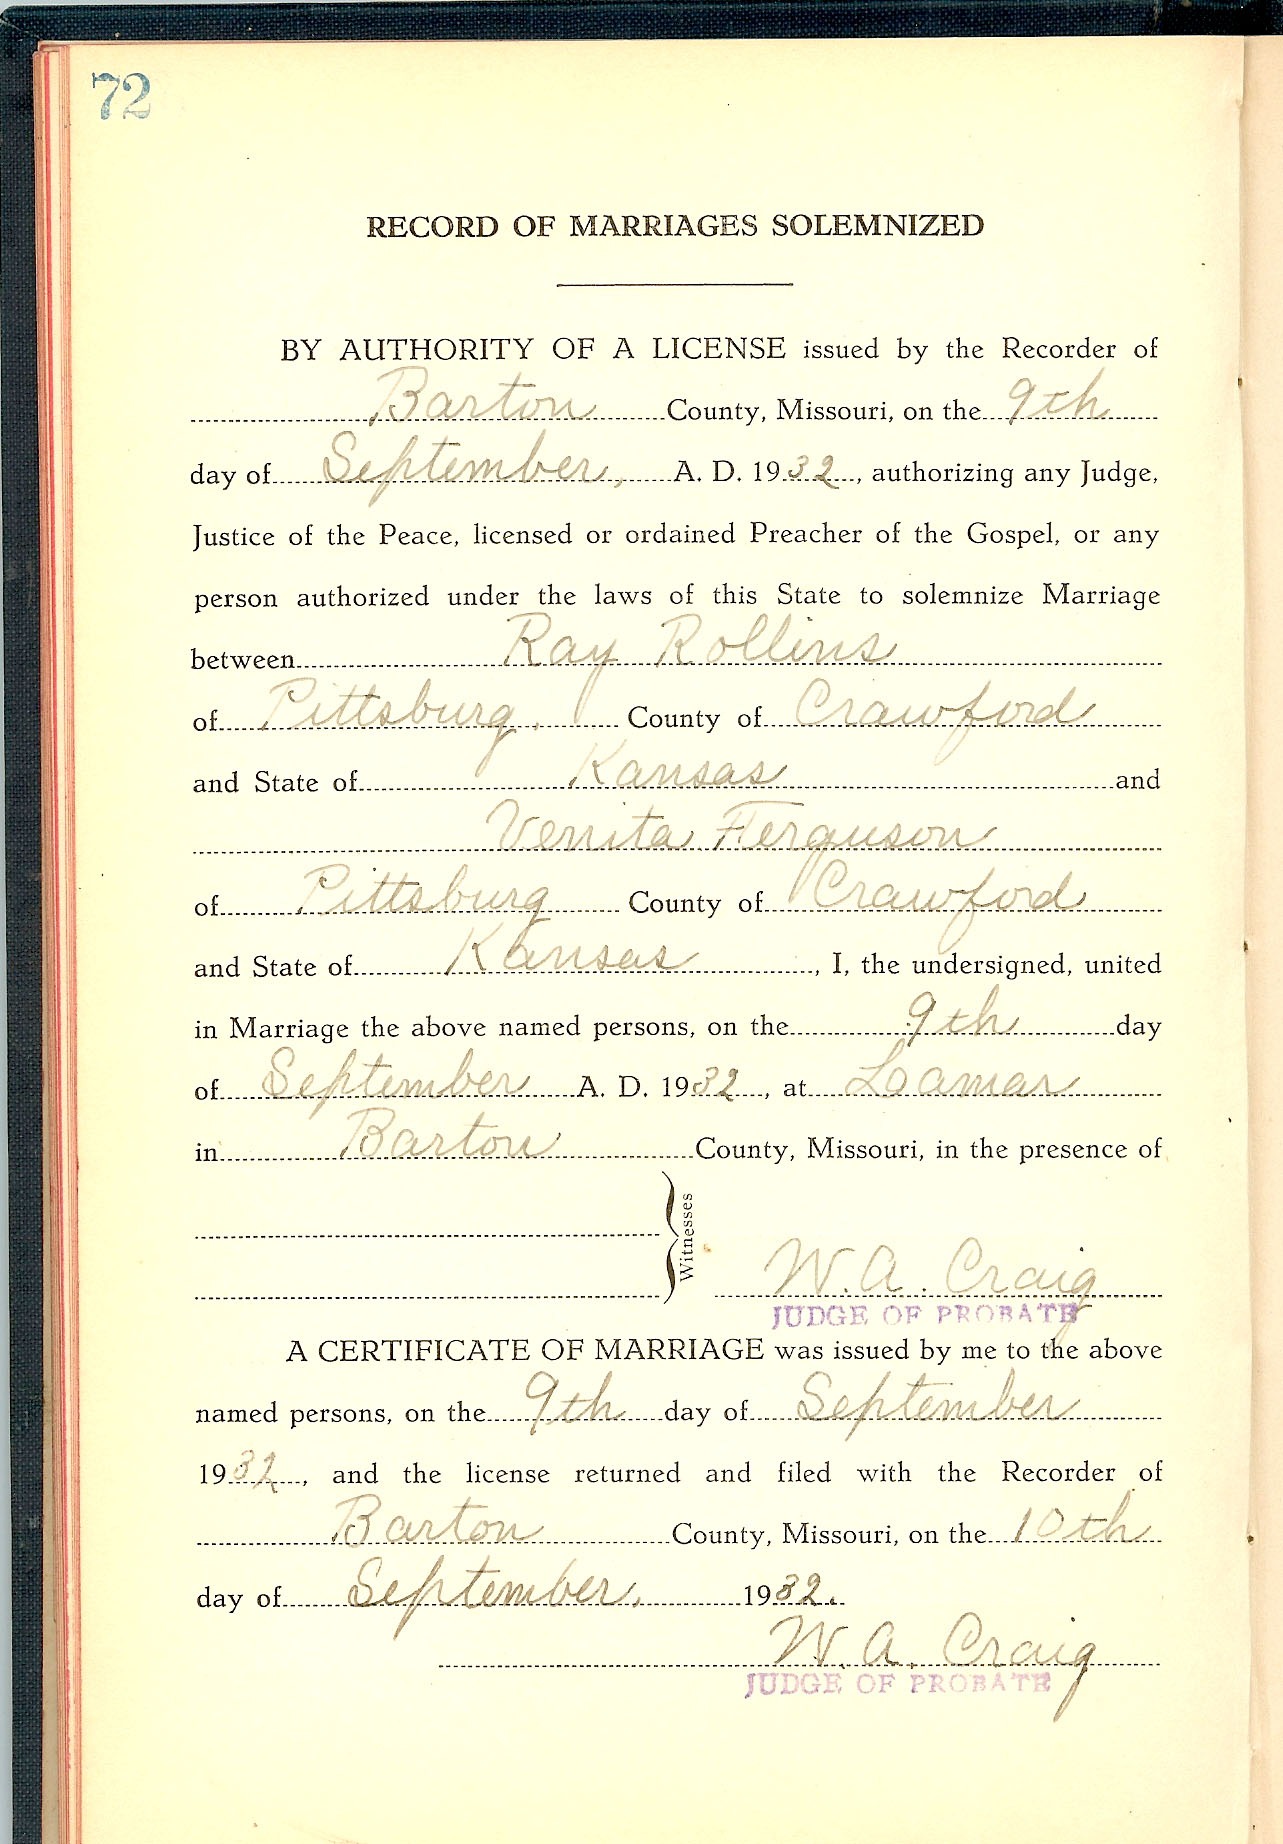 72
RECORD OF MARRIAGES SOLEMNIZED
BY AUTHORITY OF A LICENSE issued by the Recorder of
Barton County, Missouri, on the 9th
day of September, A. D. 1932, authorizing any Judge,
Justice of the Peace, licensed or ordained Preacher of the Gospel, or any
person authorized under the laws of this State to solemnize Marriage
between Ray Rollins
of Pittsburg, County of Crawford
and State of Kansas and
Verrita Ferguson
of Pittsburg County of Crawford
and State of Kansas, I, the undersigned, united
in Marriage the above named persons, on the 9th day
of September A. D. 1932, at Lamar
in Barton County, Missouri, in the presence of
Witnesses
W. A. Craig
JUDGE OF PROBATE
A CERTIFICATE OF MARRIAGE was issued by me to the above
named persons, on the 9th day of September
1932, and the license returned and filed with the Recorder of
Barton County, Missouri, on the 10th
day of September, 1932.
W. A. Craig
JUDGE OF PROBATE